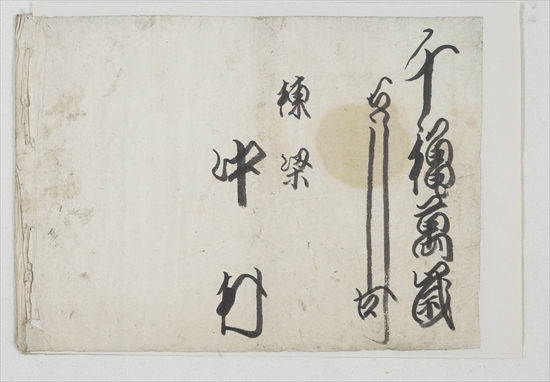 千穐萬歳
棟梁
中村